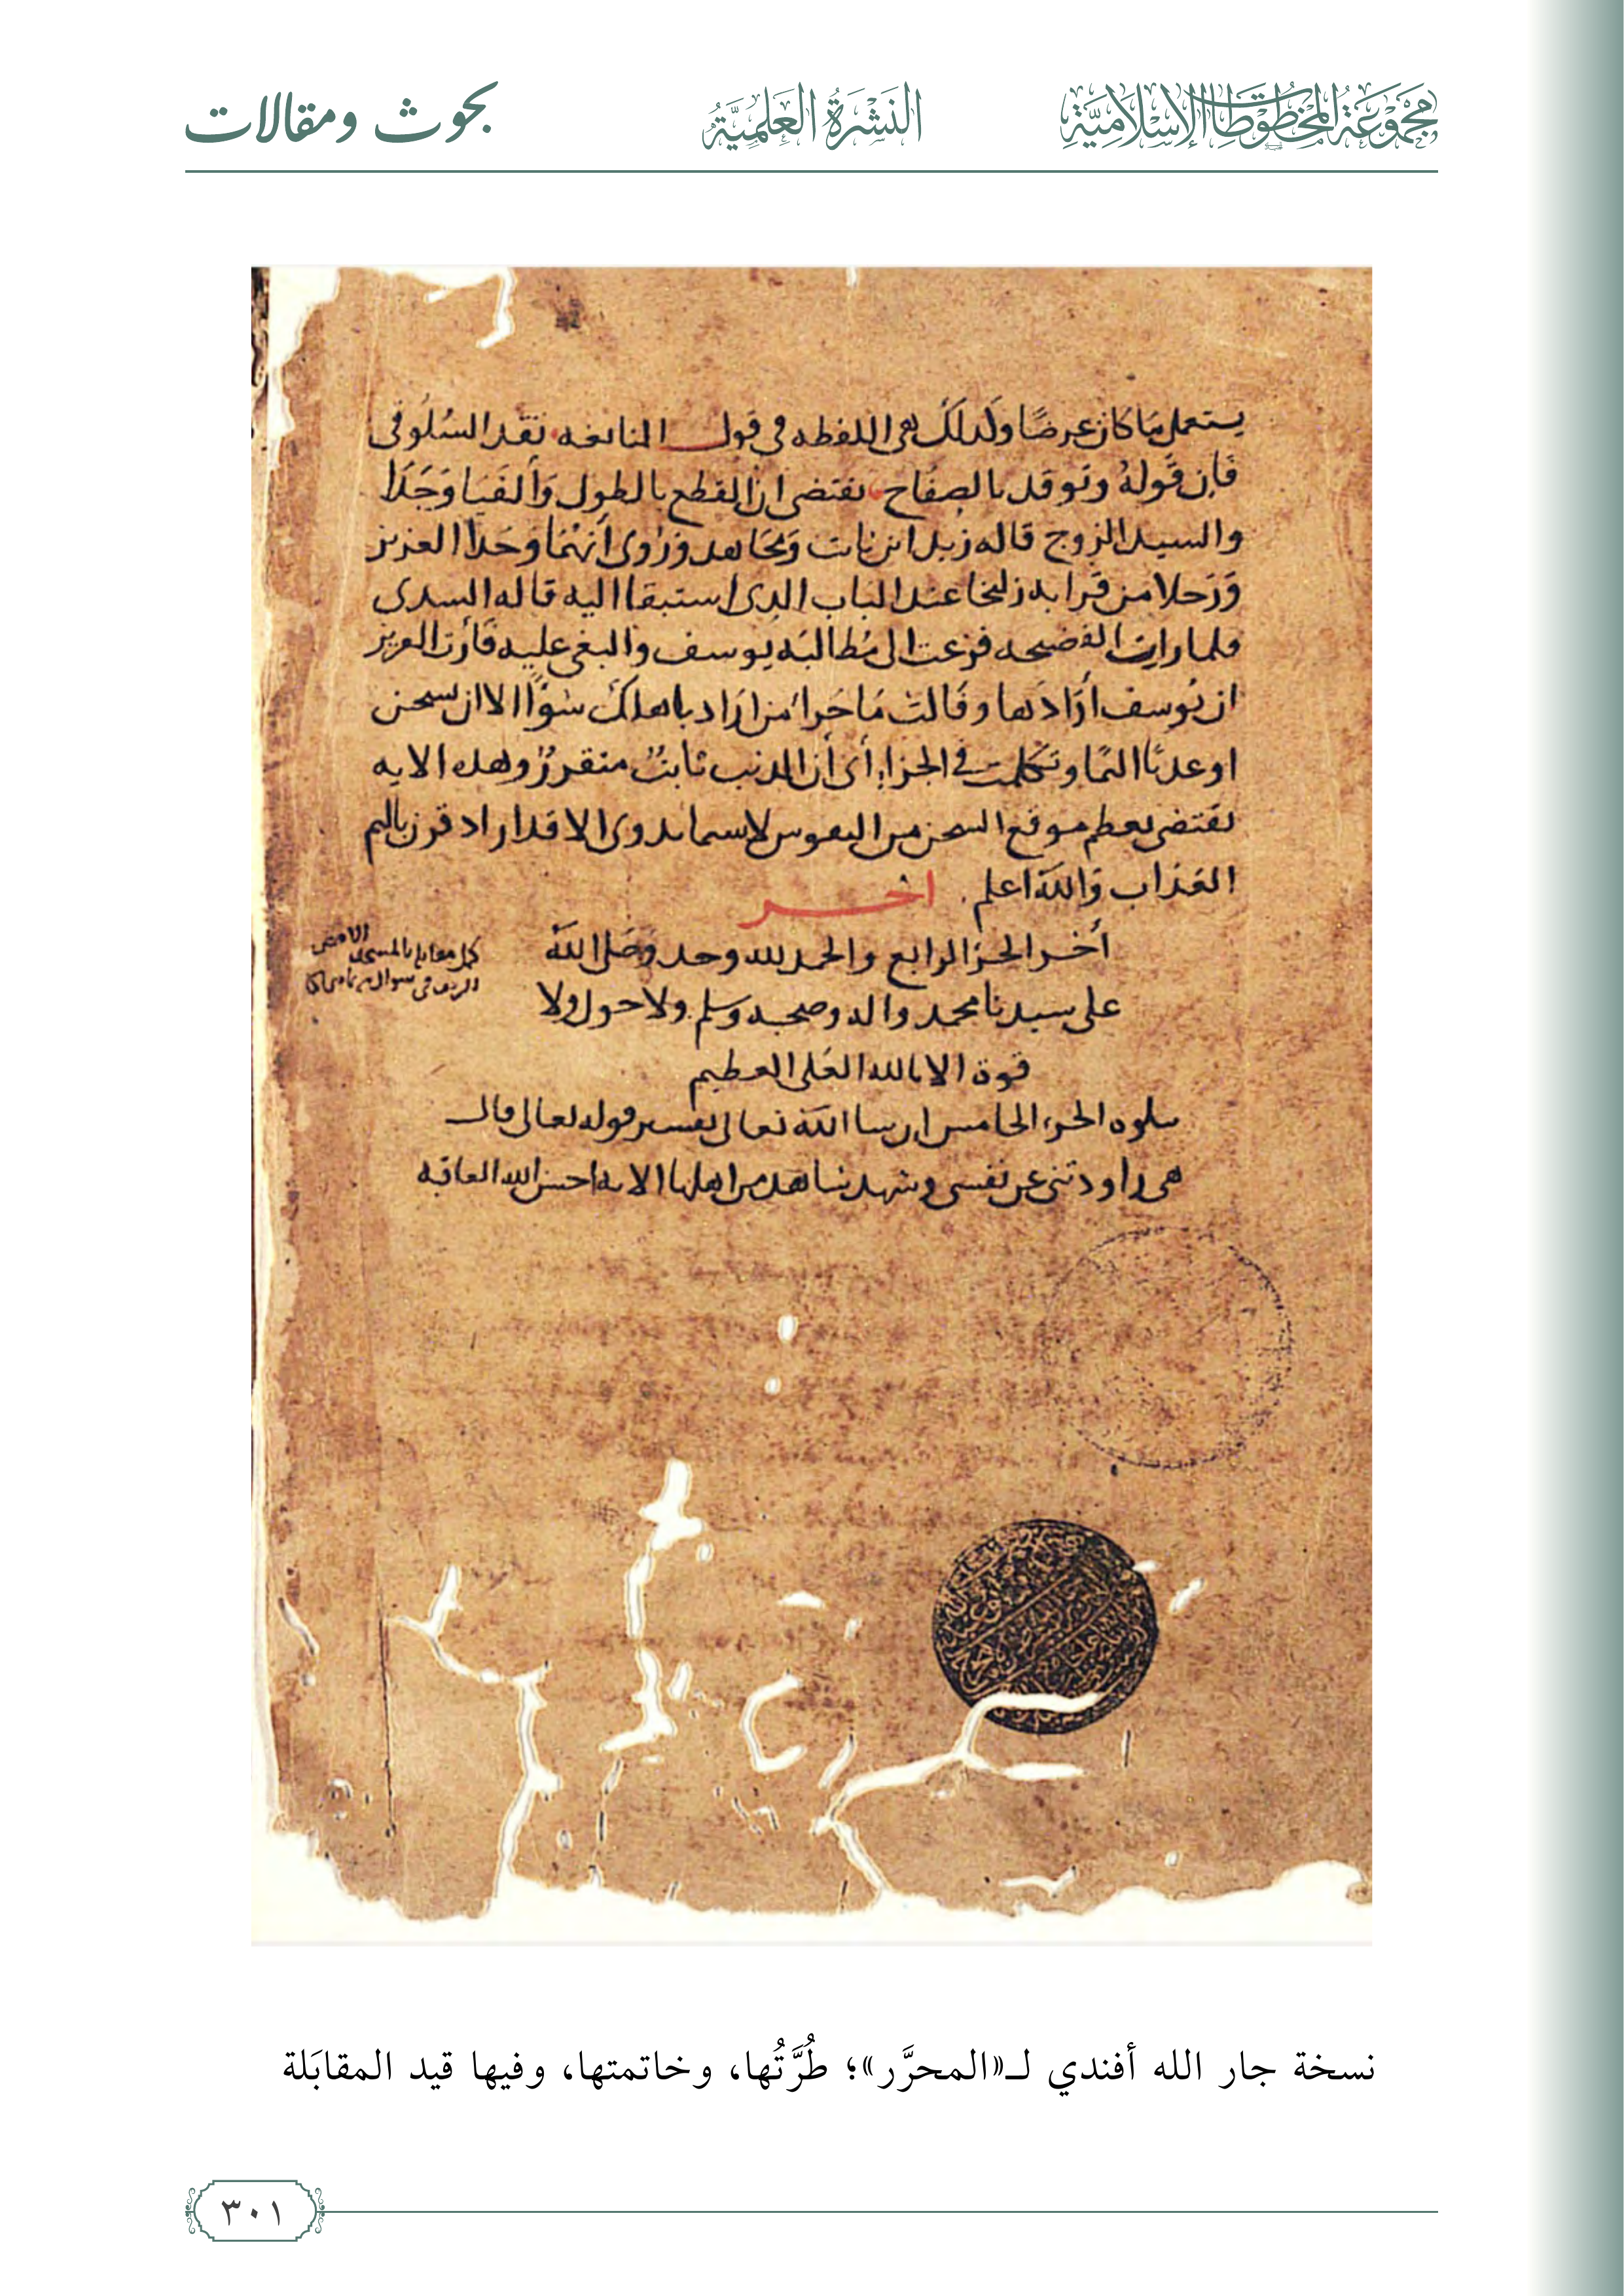 مجموعة المخطوطات الإسلامية
النشرة العلمية
بحوث ومقالات
يستعمل ما كان عرضا ولذلك في اللفظه في قول النابغه تقد السلوقي
فان قوله وتوقد بالصفاح يقتضي ان القطع بالطول وألفيا وَجَدَا
والسيد الزوج قاله زيد ابن ثابت ومجاهد وَرُوى أنهُما وجدا العزيز
ورجلا من قرابه زليخا عند الباب الذى استبقا اليه قاله السدى
فلما رات الفضيحه فزعت الى مُطالبَه يُوسف والبغى عليه فأرت العزيز
ان يُوسف أرَادَها وقالت مَا جَزاء من ارَاد باهلك سُوْءًا الا ان يسجن
او عذَابٌ اليم وتكلمت في الجزاء أى أن الذنب ثابتٌ متقررٌ وهذه الايه
تقتضى بعظم موقع السجن من النفوس لاسيما بذوى الاقدار اذ قرن باليم
العَذاب وَالله اعلم.
اخر
أخر الجزء الرابع والحمد لله وحده وصَلى الله
على سيدنا محمد واله وصحبه وسلم ولا حول ولا
قوة الا بالله العَلى العظيم
يتلوه الجزء الخامس ان شا الله تعالى تفسير قوله تعالى قال
هى راودتنى عن نفسى وشهد شاهد من اهلها الايه احسن الله العاقبه
كمل مقابله بالمسجد الاقصى
نسخة جار الله أفندي لـ«المحرَّر»؛ طُرَّتُها، وخاتمتها، وفيها قيد المقابَلة
٣٠١